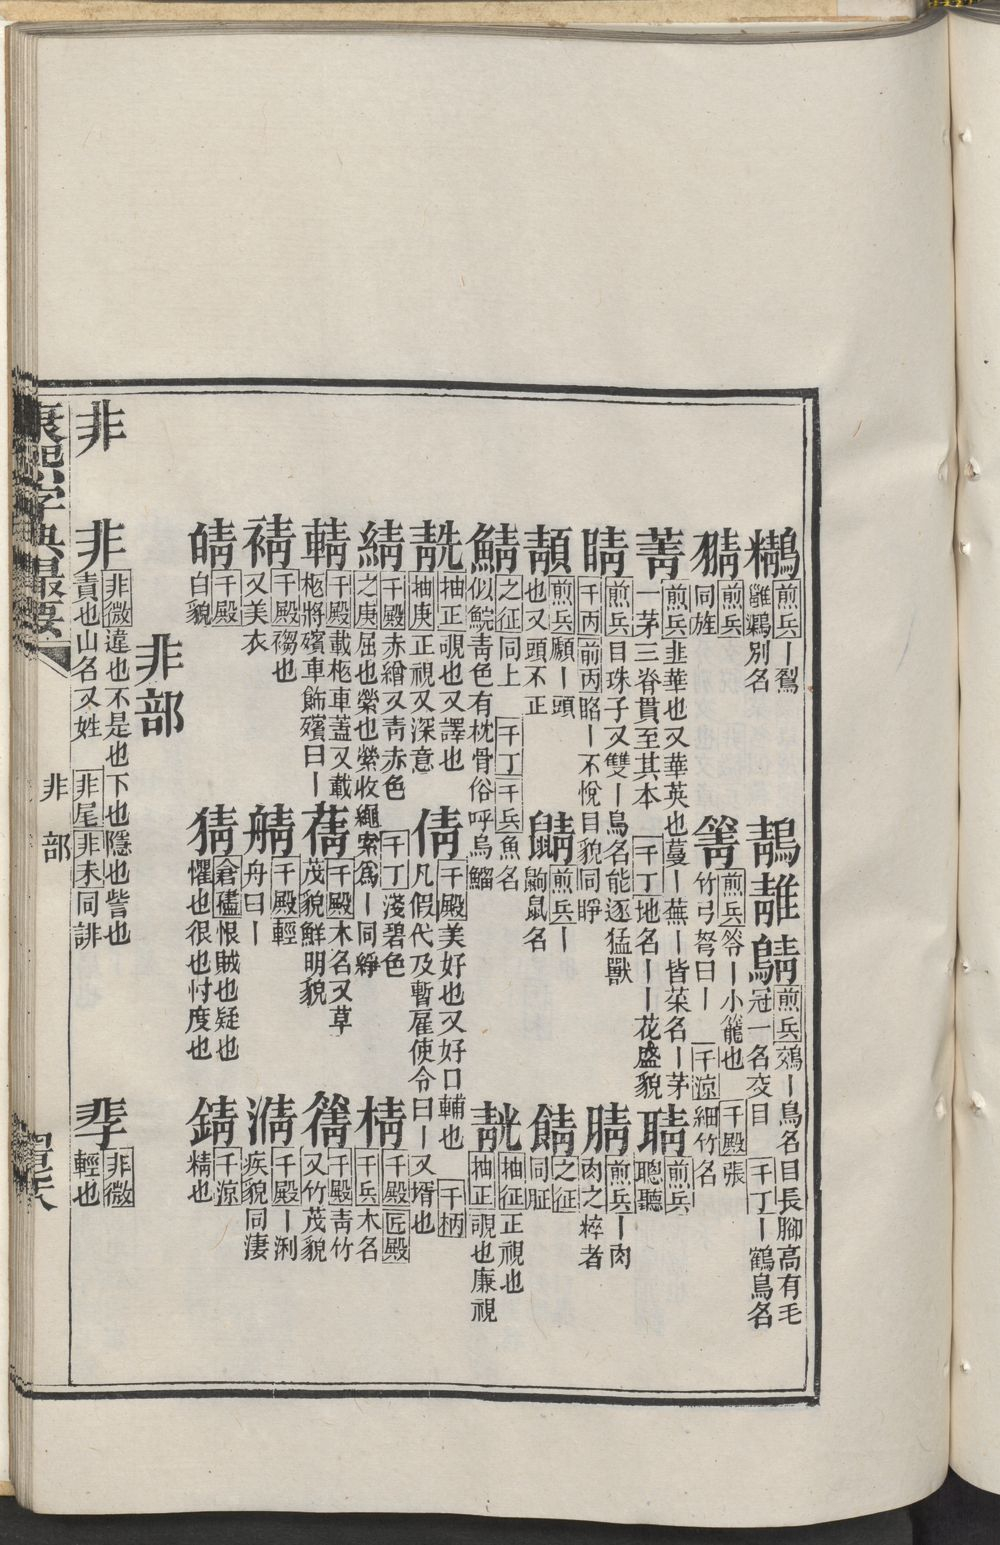 鶄 煎兵丨鴽雝鸔別名 鶄䨝鶄 煎兵鵁丨鳥名目長腳高有毛冠一名交目 千丁丨鶴鳥名
猜 煎兵同旌 箐 煎兵笭丨小籠也 千殿張竹弓弩曰丨 千涼細竹名
菁 煎兵韭華也又華英也蔓丨蕪丨皆菜名丨茅一茅三脊貫至其本 千丁地名丨丨花盛貌 聙 煎兵聰聽
睛 煎兵目珠子又雙丨鳥名能逐猛獸 千丙前丙眳丨不悅目貌同睜 腈 煎兵丨肉肉之粹者
䫆 煎兵䫆丨頭也又頭不正 鼱 煎兵丨鼩鼠名 䝼 之征同䏣
鯖 之征同上 千丁千兵魚名似鯇靑色有枕骨俗呼烏鰡 䚍 抽征正視也 抽正覗也廉視
靗 抽正覗也又譯也 抽庚正視又深意 倩 千殿美好也又好口輔也 千柄凡假代及暫雇使令曰丨又壻也
綪 千殿赤繒又靑赤色 千丁淺碧色 之庚屈也縈也縈收繩索爲丨同綪 棈 千殿匠殿千兵木名
輤 千殿載柩車蓋又載柩將殯車飾殯曰丨 蒨 千殿木名又草茂貌鮮明貌 篟 千殿靑竹又竹茂貌
䘽 千殿䙃也又美衣 䑶 千殿輕舟曰丨 凊 千殿丨浰疾貌同淒
皘 千殿白貌 猜 倉礚恨賊也疑也懼也很也忖度也 錆 千涼精也
非部
非 非 非微違也不是也下也隱也訾也責也山名又姓 非尾非未同誹 𡥉 非微輕也
康熙字典撮要 非部